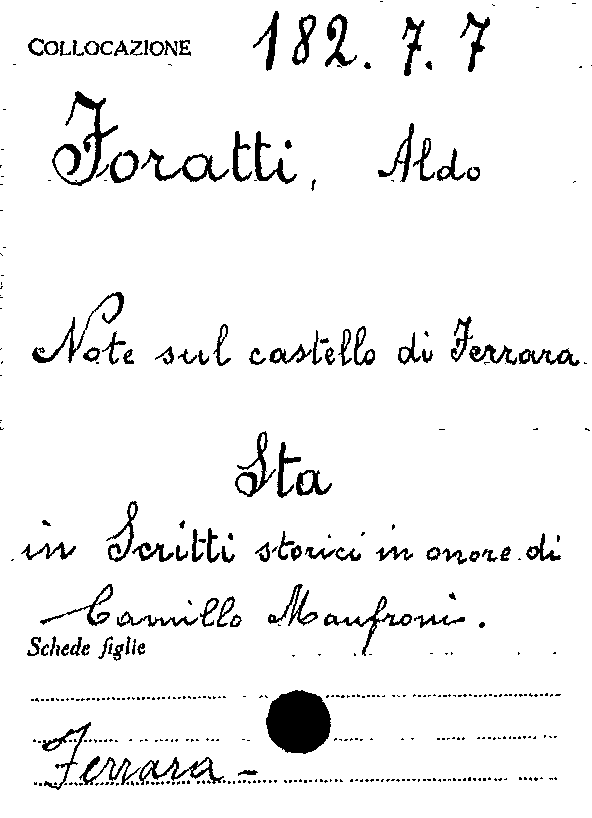 COLLOCAZIONE 182. 7. 7
Foratti, Aldo
Note sul castello di Ferrara.
Sta
in Scritti storici in onore di
Camillo Manfroni.
Schede figlie
Ferrara -